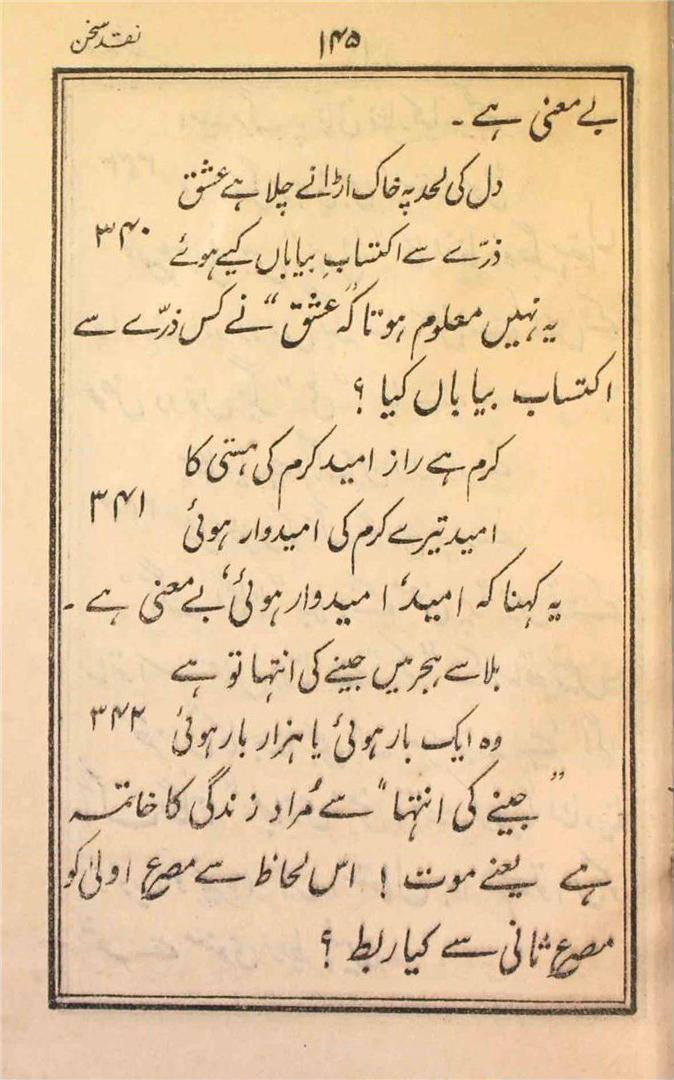 نقد سخن
۱۴۵
بے معنی ہے ۔
دل کی لحد پہ خاک اڑانے چلا ہے عشق
ذرّے سے اکتسابِ بیاباں کیے ہوئے ۳۴۰
یہ نہیں معلوم ہوتا کہ ”عشق“ نے کس ذرّے سے
اکتساب بیاباں کیا ؟
کرم ہے راز امید کرم کی ہستی کا
امید تیرے کرم کی امیدوار ہوئی ۳۴۱
یہ کہنا کہ امید ’امیدوار ہوئی‘ بے معنی ہے ۔
بلا سے ہجر میں جینے کی انتہا تو ہے
وہ ایک بار ہوئی یا ہزار بار ہوئی ۳۴۲
”جینے کی انتہا“ سے مُراد زندگی کا خاتمہ
ہے یعنے موت ! اس لحاظ سے مصرع اولیٰ کو
مصرع ثانی سے کیا ربط ؟